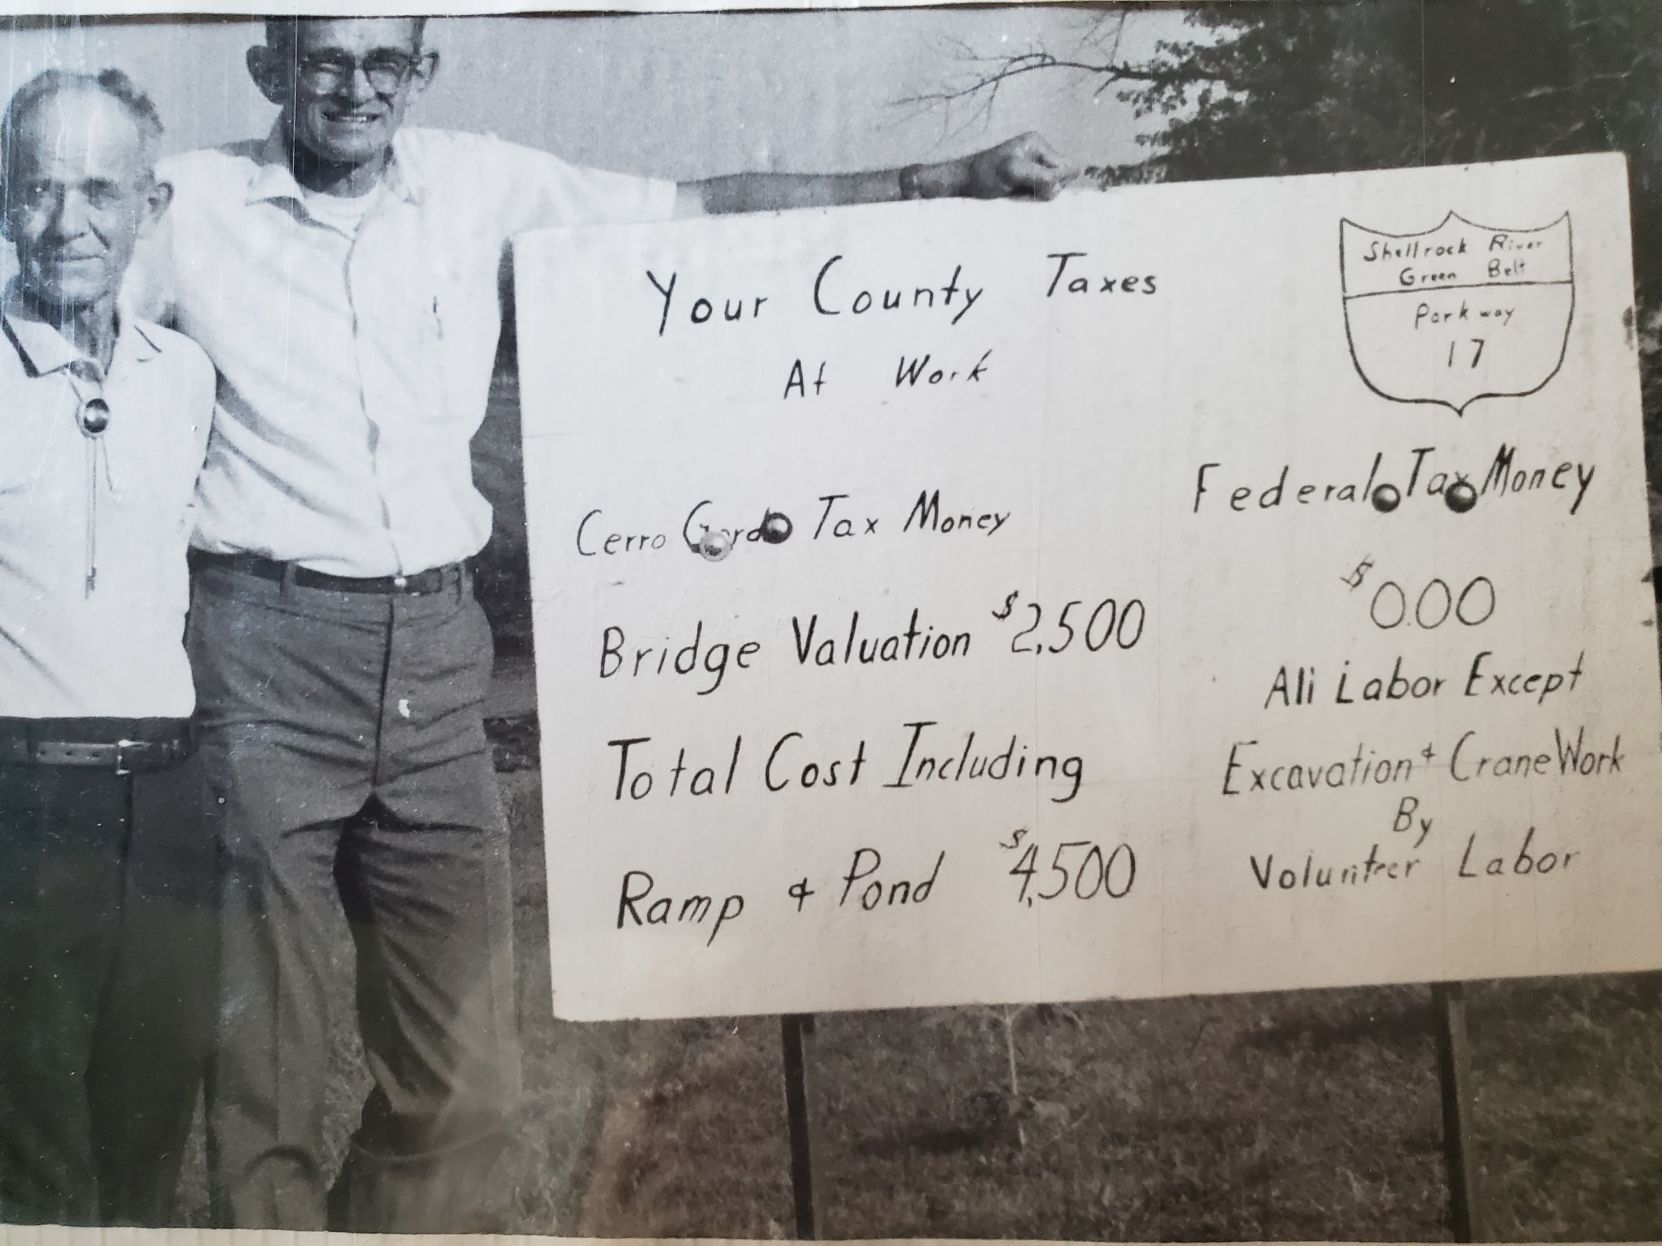 Your County Taxes
At Work
Shellrock River
Green Belt
Parkway
17
Cerro Gordo Tax Money
Bridge Valuation $2,500
Total Cost Including
Ramp & Pond $4,500
Federal Tax Money
$0.00
All Labor Except
Excavation & Crane Work
By
Volunteer Labor